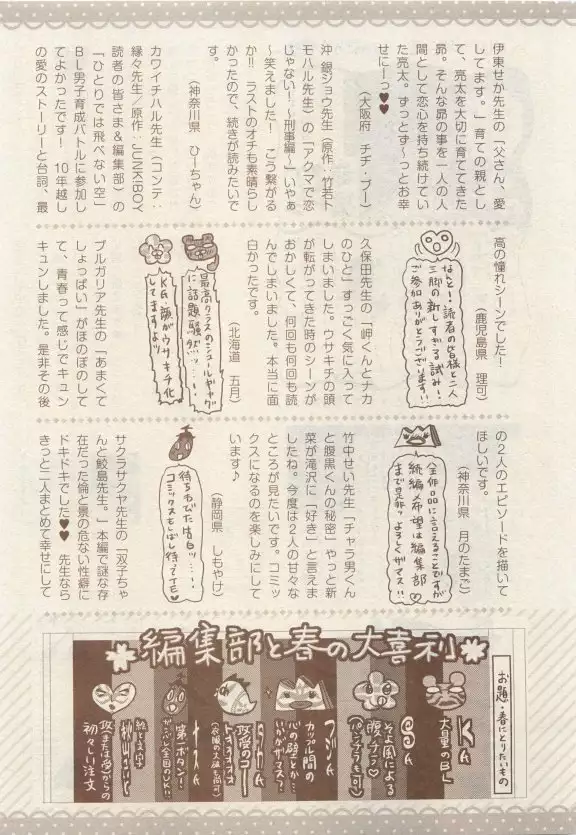 伊東せか先生の「父さん、愛
してます。」育ての親とし
て、亮太を大切に育ててきた
昴。そんな昴の事を一人の人
間として恋心を持ち続けてい
た亮太。ずっとず～っとお幸
せにーっ♥♥
（大阪府　チヂ・ブー）
沖 銀ジョウ先生（原作：竹若ト
モハル先生）の「アクマで恋
じゃない！～刑事編～」いやぁ
～笑えました！　こう繋がる
か!!　ラストのオチも素晴らし
かったので、続きが読みたいで
す。
（神奈川県　ひーちゃん）
カワイチハル先生（コンテ：
緣々先生／原作：JUNKIBOY
読者の皆さま＆編集部）の
「ひとりでは飛べない空」
BL男子育成バトルに参加し
てよかったです！　10年越し
の愛のストーリーと台詞、最
高の憧れシーンでした！
（鹿児島県　理可）
なんと！・読者の皆様と二人
三脚の新しすぎる試み！・
ご参加ありがとうございます!!
久保田先生の「岬くんとナカ
のひと」すっごく気に入って
しまいました。ウサキチの頭
が転がってきた時のシーンが
おかしくて、何回も何回も読
んでしまいました。本当に面
白かったです。
（北海道　五月）
最高クラスのシュールギャグ
に話題騒然ッ…！
KA・顔がウサキチ化
してますよッ
ブルガリア先生の「あまくて
しょっぱい」がほのぼのして
て、青春って感じでキュン
キュンしました。是非その後
の2人のエピソードを描いて
ほしいです。
（神奈川県　月のたまご）
全作品に言えることですが
続編希望は編集部♡
まで是非・よろしくザマス!!
竹中せい先生「チャラ男くん
と腹黒くんの秘密」やっと新
菜が滝沢に「好き」と言えま
したね。今度は2人の甘々な
ところが見たいです。コミッ
クスになるのを楽しみにして
います♪
（静岡県　しもやけ）
待ちわびた告白ッ…！
コミックスもしばし待ってTE♡
サクラサクヤ先生の「双子ちゃ
んと鮫島先生。」本編で謎な存
在だった倫と景の危ない性癖に
ドキドキでした♥♥　先生なら
きっと二人まとめて幸せにして
編集部と春の大喜利
お題・春にとりたいもの
KA
大量のBL
SA
そよ風による
腹チラ♡
（パンチラも可）
カップル間の
心の壁とか…
いかがザマス？
攻受のコー
トスティックス
（衣服の大破も尚可）
第一ボタン！
ガッツし全国のDK!!
絵と文字
攻（または受）からの
初々しい注文